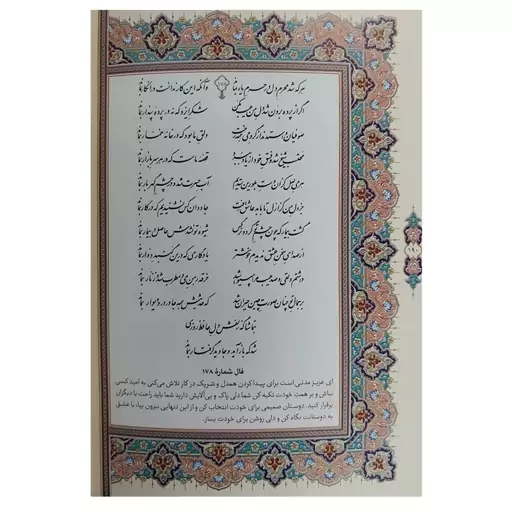 ۱۷۸
هر که شد محرم دل در حرم یار بماند وانکه این کار ندانست در انکار بماند
اگر از پرده برون شد دل من عیب مکن شکر ایزد که نه در پرده پندار بماند
صوفیان واستدند از گرو می همه رخت دلق ما بود که در خانه خمار بماند
محتسب شیخ شد و فسق خود از یاد ببرد قصه ماست که در هر سر بازار بماند
هر می لعل کزان دست بلورین ستدیم آب حسرت شد و در چشم گهربار بماند
جز دل من کز ازل تا به ابد عاشق رفت جاودان کس نشنیدیم که در کار بماند
گشت بیمار که چون چشم تو گردد نرگس شیوه تو نشدش حاصل و بیمار بماند
از صدای سخن عشق ندیدم خوشتر یادگاری که در این گنبد دوار بماند
داشتم دلقی و صد عیب مرا می‌پوشید خرقه رهن می و مطرب شد و زنار بماند
بر جمال تو چنان صورت چین حیران شد که حدیثش همه جا در در و دیوار بماند
به تماشاگه زلفش دل حافظ روزی
شد که بازآید و جاوید گرفتار بماند
فال شمارهٔ ۱۷۸
ای عزیز مدتی است برای پیدا کردن همدل و شریک در کار تلاش می‌کنی به امید کسی
نباش و بر همت خودت تکیه کن شما دلی پاک و بی‌آلایش دارید شما باید راحت با دیگران
برقرار کنید. دوستان صمیمی برای خودت انتخاب کن و از این تنهایی بیرون بیا، با عشق
به دوستانت نگاه کن و دلی روشن برای خودت بساز.